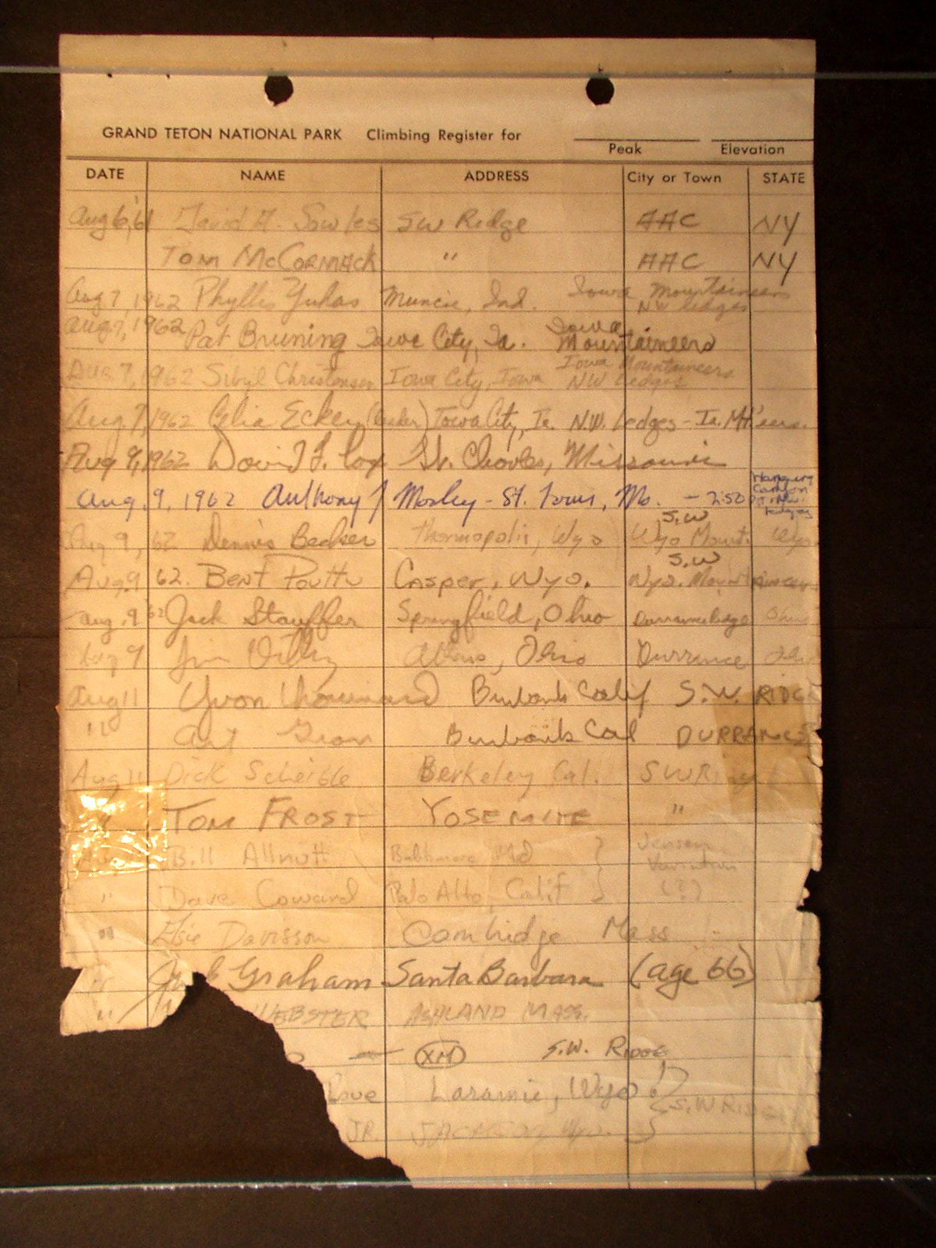 GRAND TETON NATIONAL PARK Climbing Register for
Peak Elevation
DATE NAME ADDRESS City or Town STATE
Aug 6, '61 David A. Sowles SW Ridge AAC NY
TOM McCORMACK " AAC NY
Aug 7, 1962 Phyllis Yuhas Muncie, Ind. Iowa Mountaineers
NW Ledges
Aug 7, 1962 Pat Bruning Iowa City, Ia. Iowa Mountaineers
Aug 7, 1962 Sibyl Christensen Iowa City, Iowa Iowa Mountaineers
NW Ledges
Aug 7, 1962 Celia Ecker (Ecker) Iowa City, Ia. N.W. Ledges - Ia. Mt'eers.
Aug 9, 1962 David F. Cox St. Charles, Missouri
Aug. 9, 1962 Anthony J Morley - St. Louis, Mo. - 2:50
S.W
Aug 9, 62 Dennis Becker Thermopolis, Wyo Wyo Mount. Wyo.
S.W
Aug 9 62. Bert Wyo. Mount
Casper, Wyo.
Aug. 9 '62 Jack Stauffer Springfield, Ohio Durrance Ridge Ohio
Aug 9 Jim Athens, Ohio Durrance Ohio
Aug 11 Yvon Chouinard Burbank Calif S.W. RIDGE
" Art Gran Burbank Cal DURRANCE
Aug 11 Dick Scheible Berkeley Cal. SW Ridge
" TOM FROST YOSEMITE "
Bill Allnutt Baltimore Md } Jensen
Variation
" Dave Coward Palo Alto, Calif } (?)
" Elsie Davisson Cambridge Mass
" Jack Graham Santa Barbara (age 66)
" WEBSTER ASHLAND MASS.
— XM S.W. RIDGE
Love Laramie, Wyo } S.W RIDGE
JR. JACKSON Wyo. }